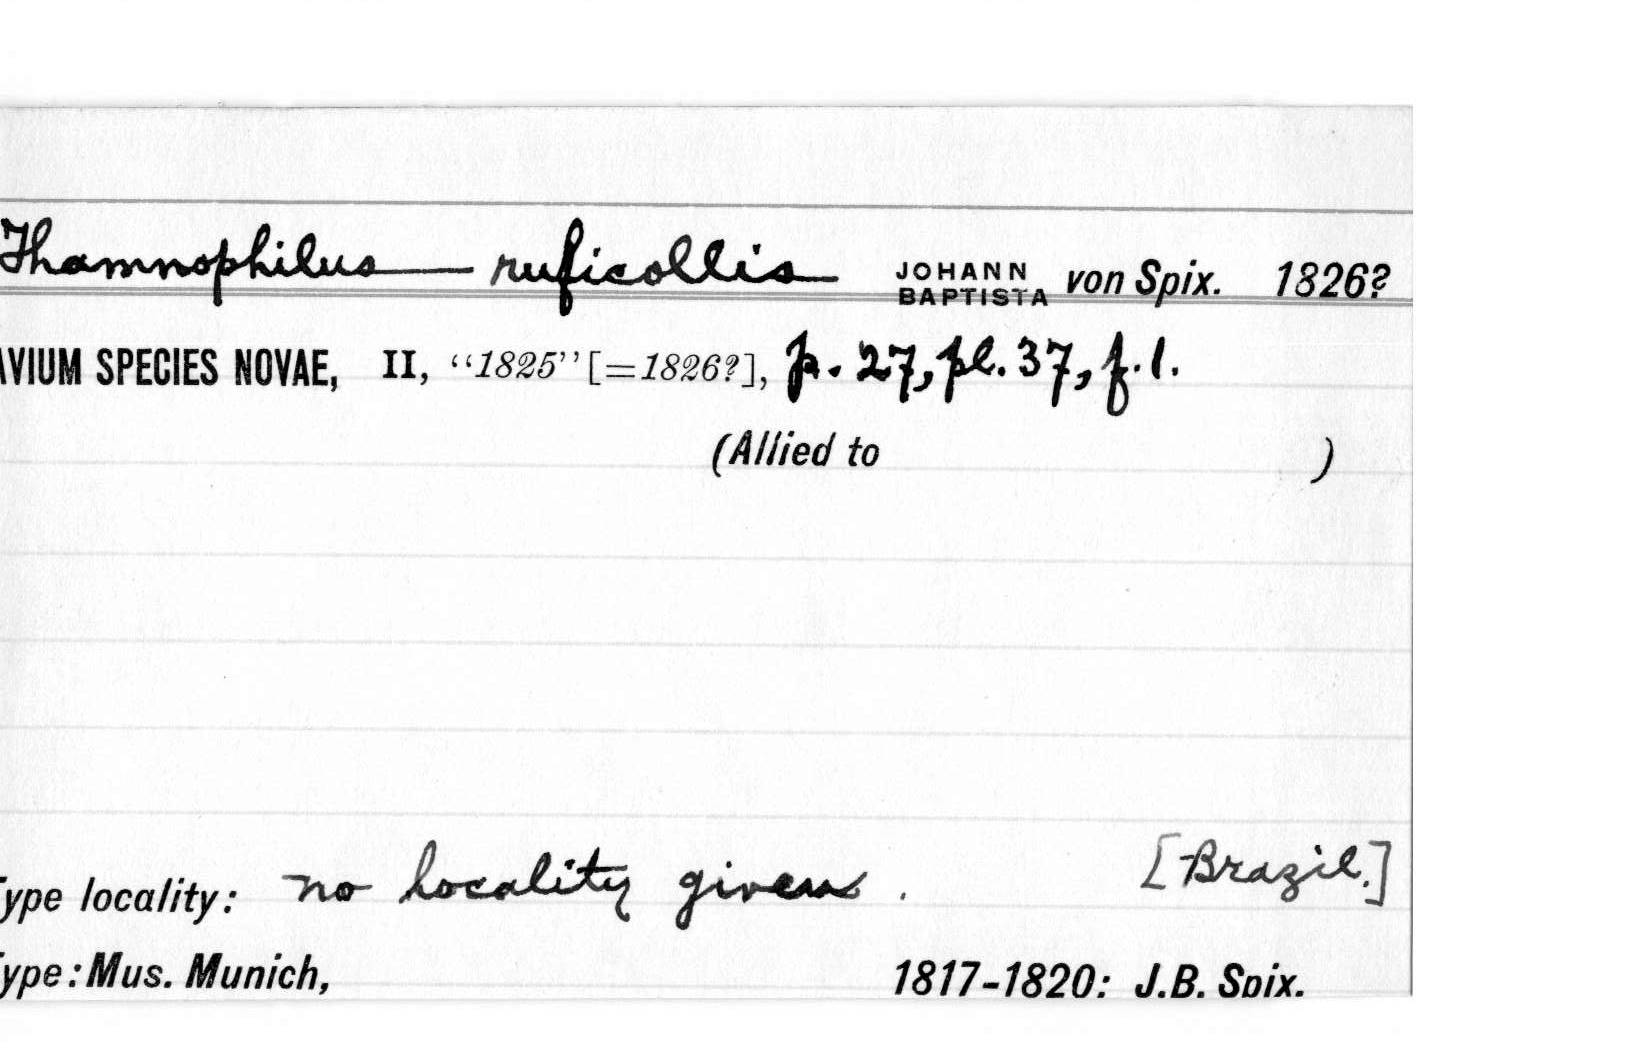 Thamnophilus ruficollis JOHANN BAPTISTA von Spix. 1826?
AVIUM SPECIES NOVAE, II, "1825" [=1826?], p. 27, pl. 37, f. 1.
(Allied to )
Type locality: no locality given. [Brazil.]
Type: Mus. Munich, 1817-1820: J.B. Spix.